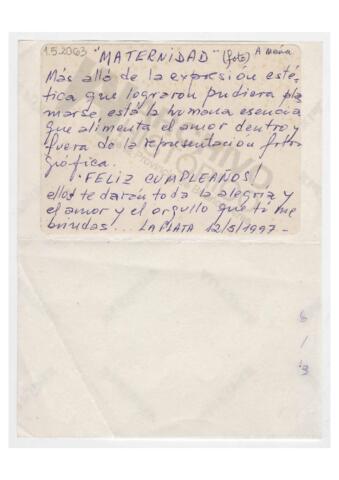 1.5.2063
"MATERNIDAD" (foto) A
Más allá de la expresión esté-
tica que lograron pudiera pla
marse, está la humana esencia
que alimenta el amor dentro y
fuera de la representación foto
gráfica.
¡FELIZ CUMPLEAÑOS!
ellos te darán toda la alegría y
el amor y el orgullo que tú me
brindas... LA PLATA 12/5/1997 -